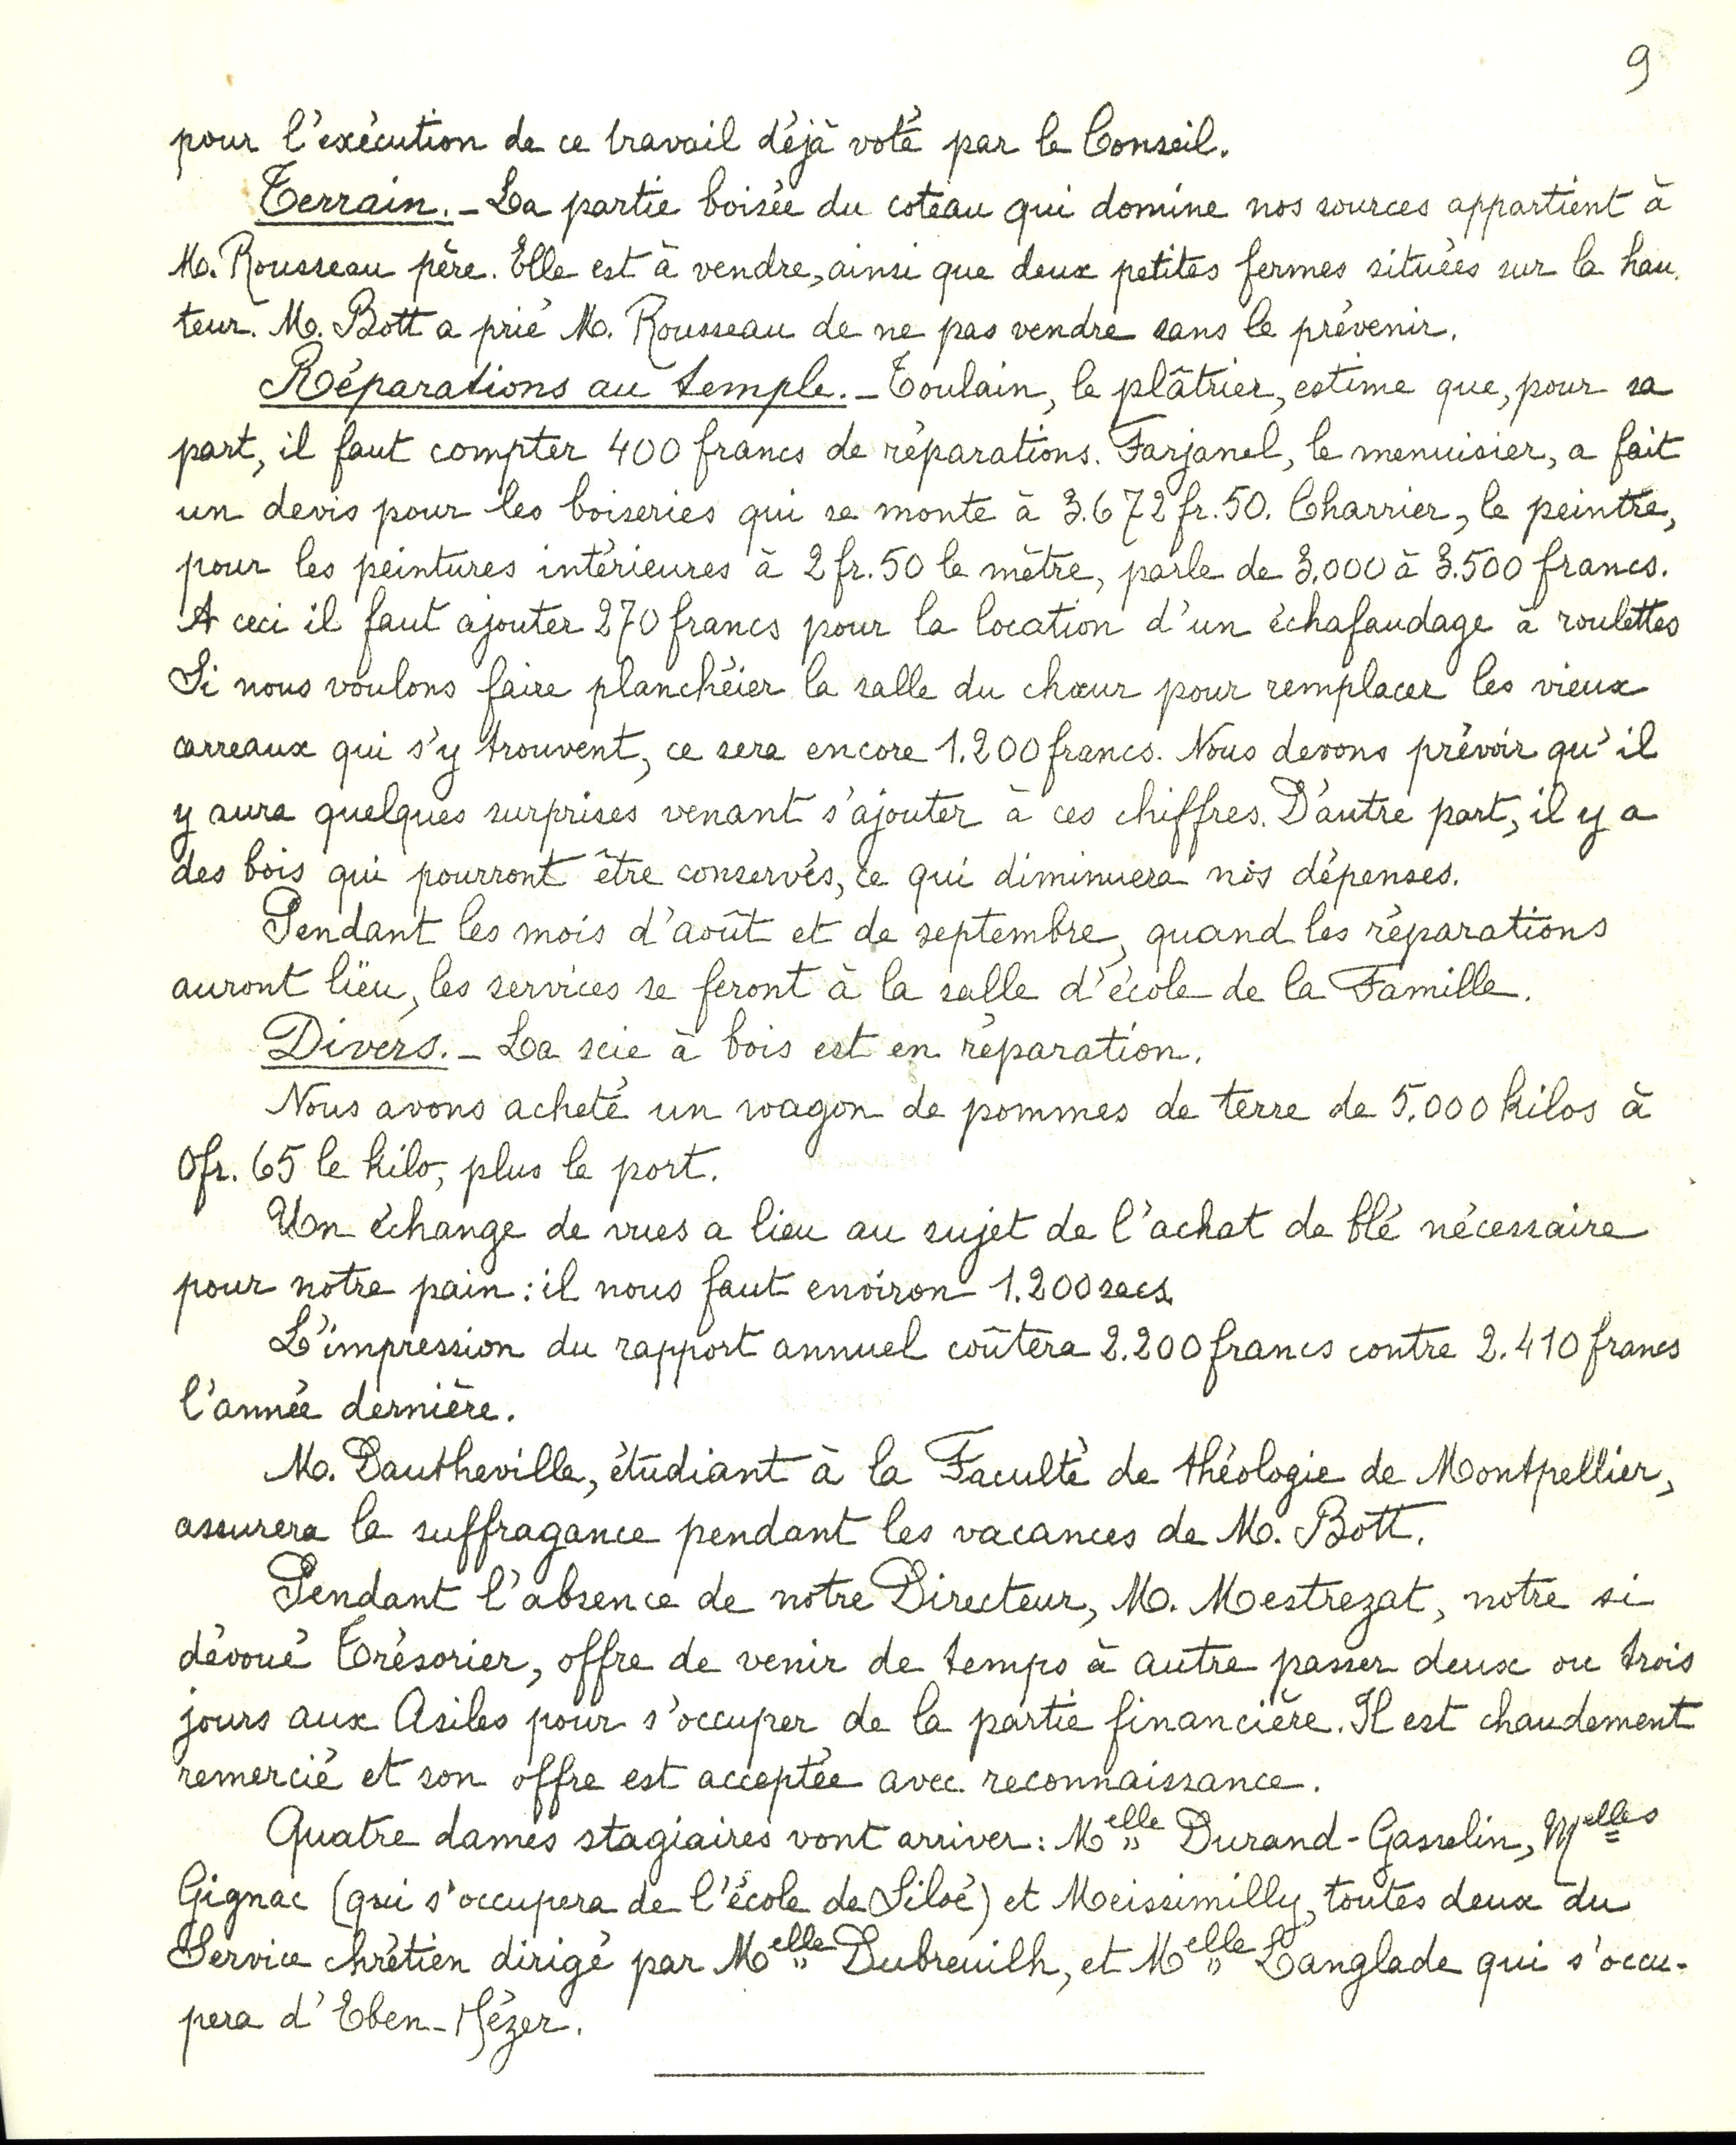 9
pour l'exécution de ce travail déjà voté par le Conseil.
Terrain. - La partie boisée du coteau qui domine nos sources appartient à
M. Rousseau père. Elle est à vendre, ainsi que deux petites fermes situées sur la hau-
teur. M. Bott a prié M. Rousseau de ne pas vendre sans le prévenir.
Réparations au temple. - Toulain, le plâtrier, estime que, pour sa
part, il faut compter 400 francs de réparations. Farjanel, le menuisier, a fait
un devis pour les boiseries qui se monte à 3.672 fr. 50. Charrier, le peintre,
pour les peintures intérieures à 2 fr. 50 le mètre, parle de 3.000 à 3.500 francs.
A ceci il faut ajouter 270 francs pour la location d'un échafaudage à roulettes
Si nous voulons faire planchéier la salle du chœur pour remplacer les vieux
carreaux qui s'y trouvent, ce sera encore 1.200 francs. Nous devons prévoir qu'il
y aura quelques surprises venant s'ajouter à ces chiffres. D'autre part, il y a
des bois qui pourront être conservés, ce qui diminuera nos dépenses.
Pendant les mois d'août et de septembre, quand les réparations
auront lieu, les services se feront à la salle d'école de la Famille.
Divers. - La scie à bois est en réparation.
Nous avons acheté un wagon de pommes de terre de 5.000 kilos à
0 fr. 65 le kilo, plus le port.
Un échange de vues a lieu au sujet de l'achat de blé nécessaire
pour notre pain : il nous faut environ 1.200 sacs.
L'impression du rapport annuel coûtera 2.200 francs contre 2.410 francs
l'année dernière.
M. Dautheville, étudiant à la Faculté de théologie de Montpellier,
assurera la suffragance pendant les vacances de M. Bott.
Pendant l'absence de notre Directeur, M. Mestrezat, notre si
dévoué Trésorier, offre de venir de temps à autre passer deux ou trois
jours aux Asiles pour s'occuper de la partie financière. Il est chaudement
remercié et son offre est acceptée avec reconnaissance.
Quatre dames stagiaires vont arriver : Melle Durand-Gasselin, Melles
Gignac (qui s'occupera de l'école de Siloé) et Meissimilly, toutes deux du
Service chrétien dirigé par Melle Dubreuilh, et Melle Langlade qui s'occu-
pera d'Eben-Hézer.